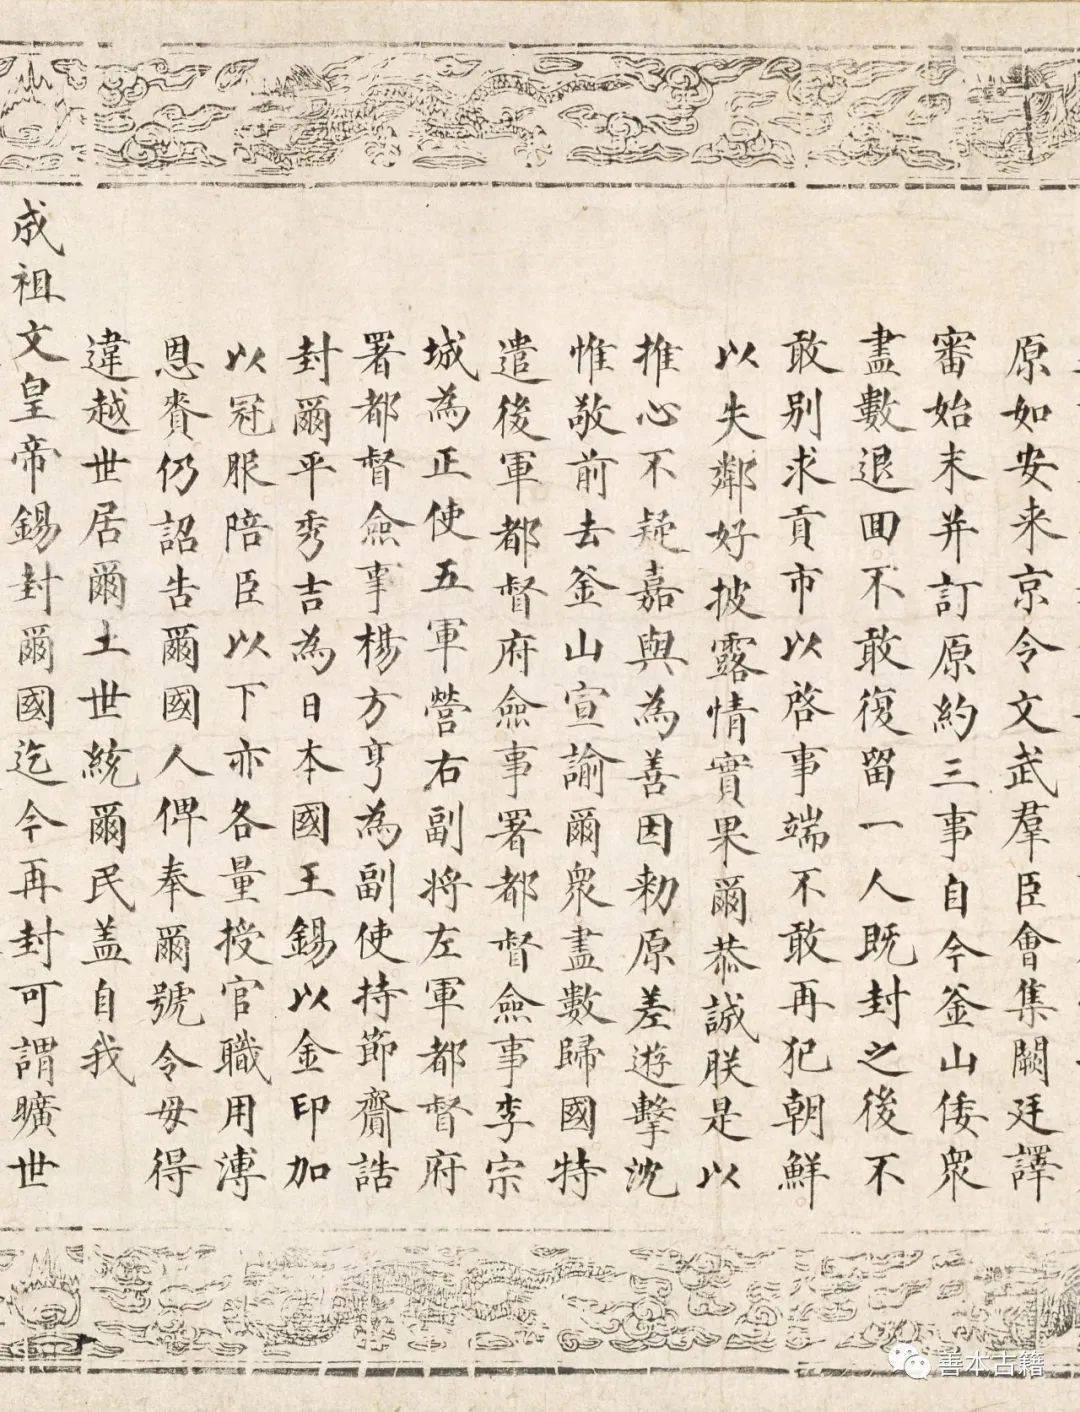 原如安来京令文武羣臣會集闕廷譯
審始末并訂原約三事自今釜山倭衆
盡數退回不敢復留一人既封之後不
敢别求貢市以啓事端不敢再犯朝鮮
以失鄰好披露情實果爾恭誠朕是以
推心不疑嘉與為善因勑原差遊擊沈
惟敬前去釜山宣諭爾衆盡數歸國特
遣後軍都督府僉事署都督僉事李宗
城為正使五軍營右副將左軍都督府
署都督僉事楊方亨為副使持節齎誥
封爾平秀吉為日本國王錫以金印加
以冠服陪臣以下亦各量授官職用溥
恩賚仍詔告爾國人俾奉爾號令毋得
違越世居爾土世統爾民盖自我
成祖文皇帝錫封爾國迄今再封可謂曠世
善本古籍